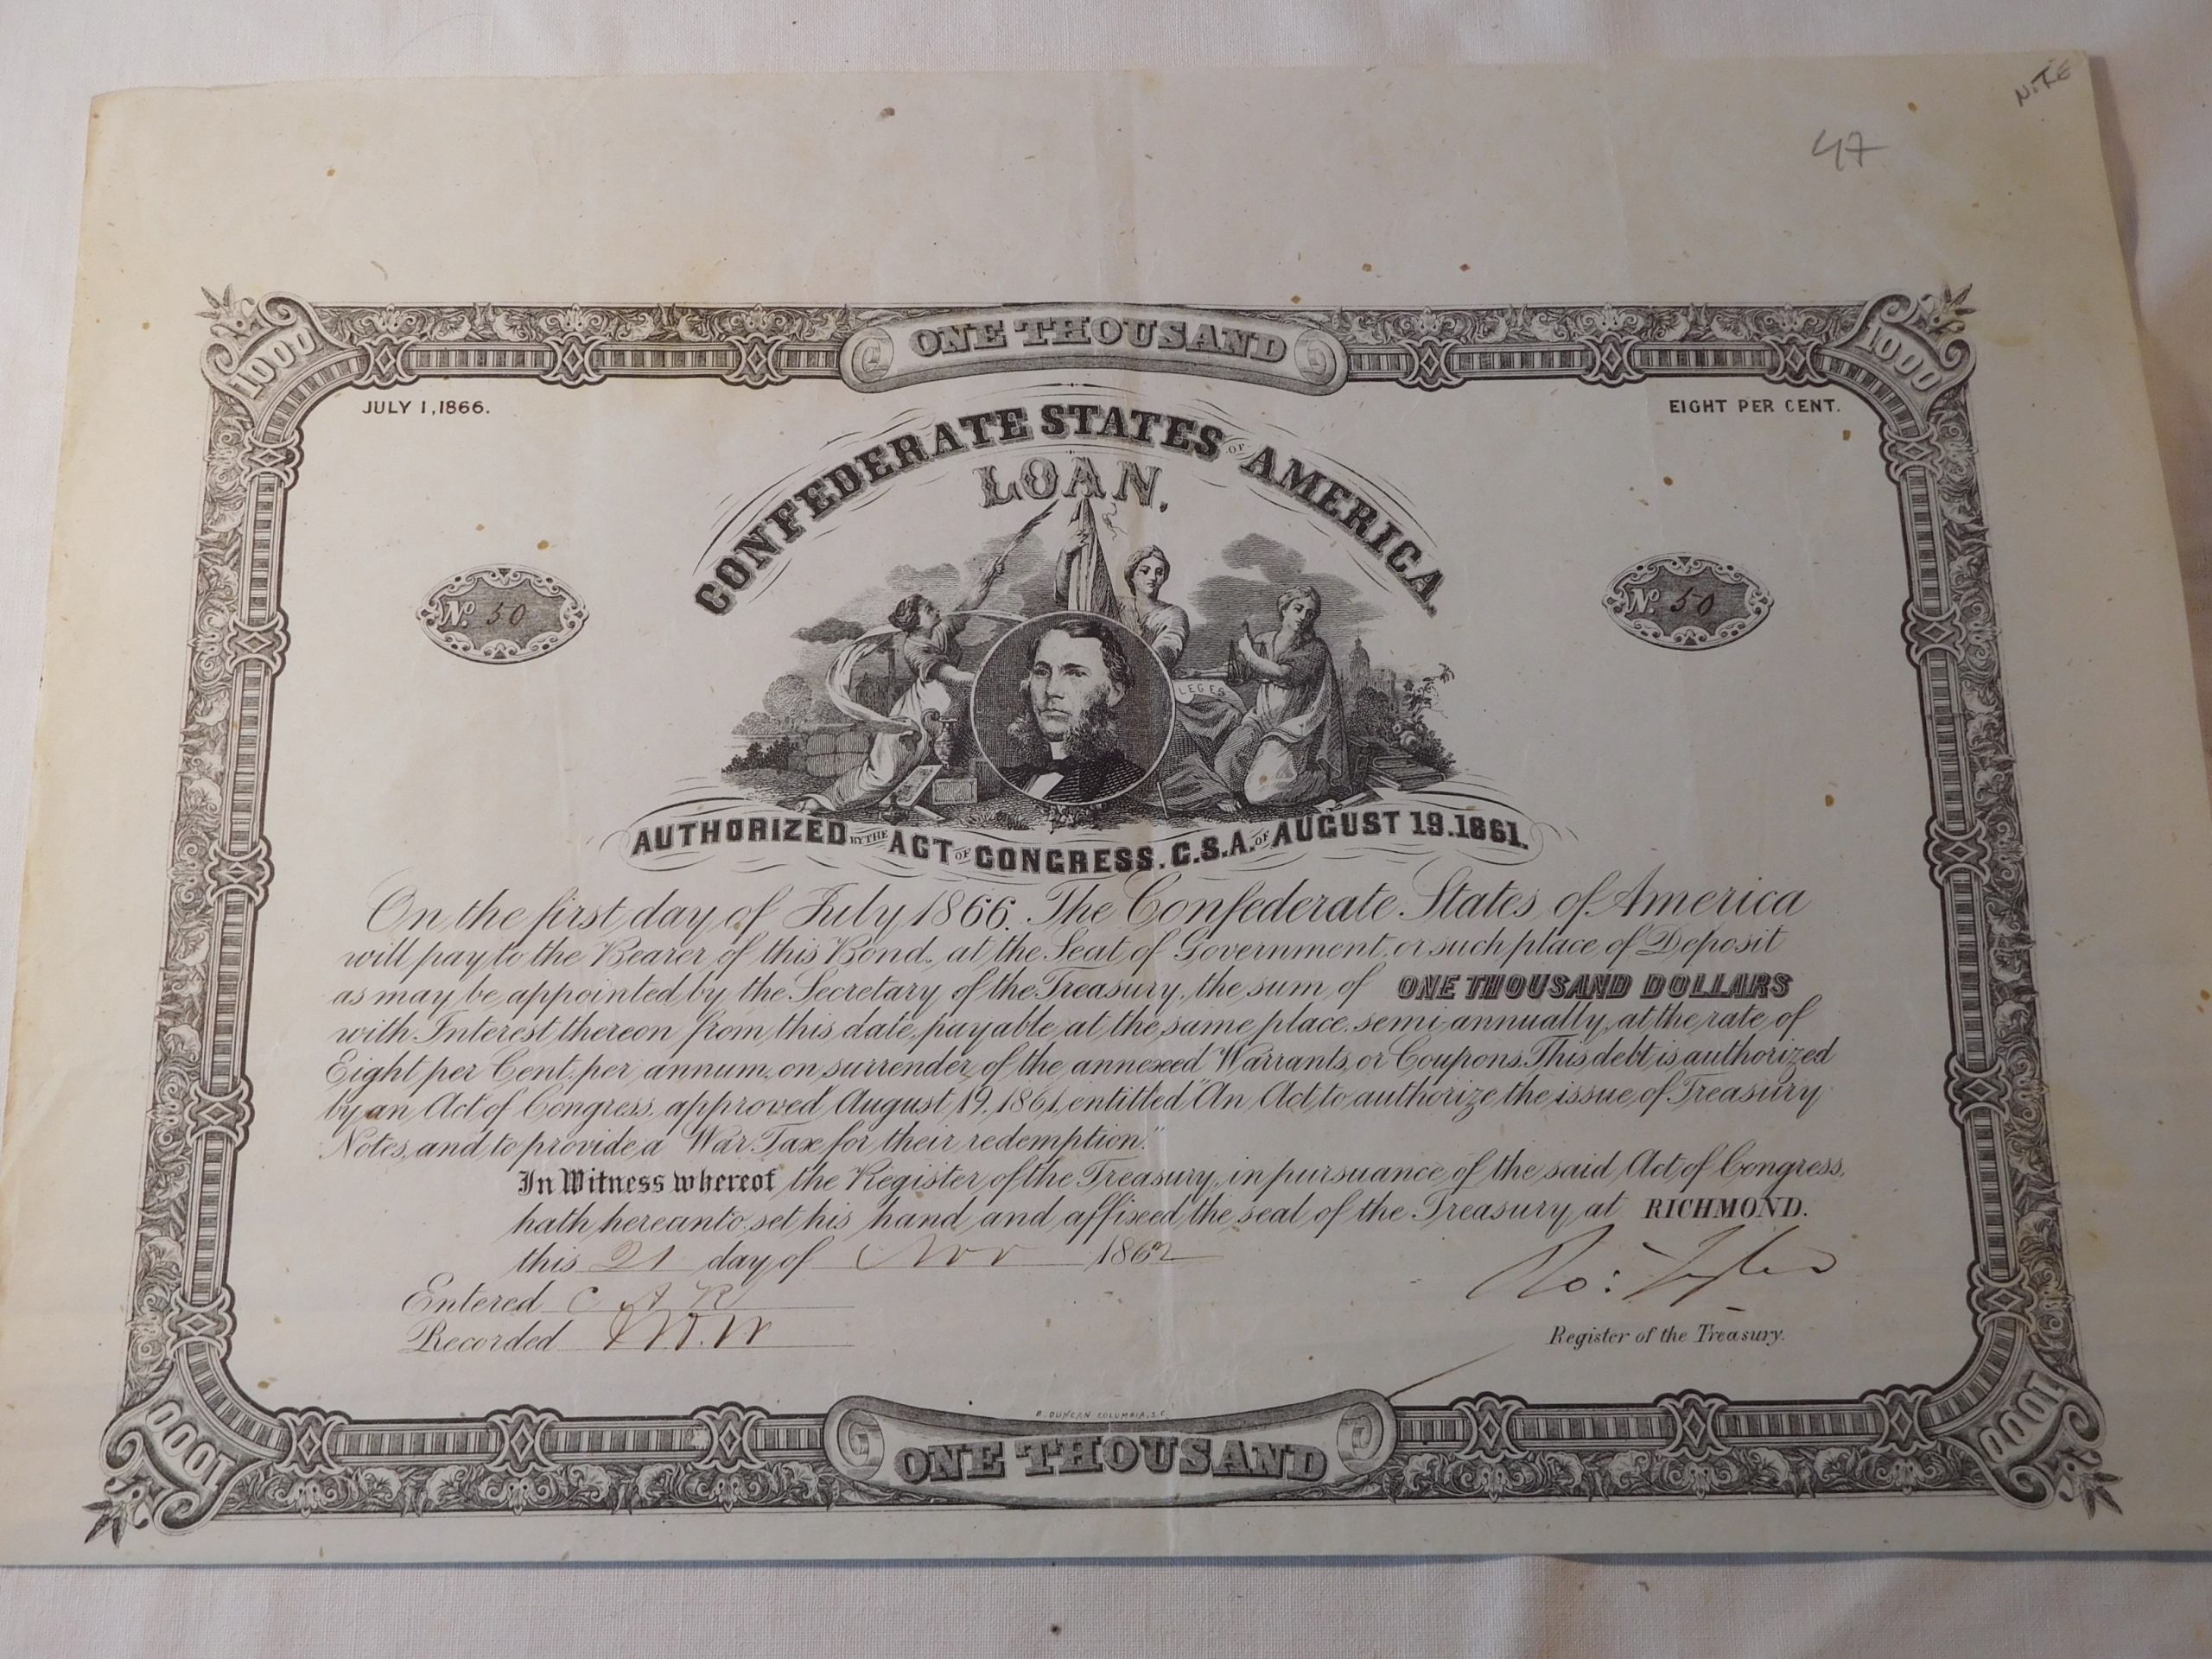 NOTE
47
ONE THOUSAND
1000
1000
JULY 1, 1866.
EIGHT PER CENT.
CONFEDERATE STATES OF AMERICA
LOAN.
No. 50
No. 50
LEGES
AUTHORIZED BY THE ACT OF CONGRESS. C.S.A. OF AUGUST 19. 1861.
On the first day of July 1866. The Confederate States of America
will pay to the Bearer of this Bond, at the Seat of Government, or such place of Deposit
as may be appointed by the Secretary of the Treasury, the sum of ONE THOUSAND DOLLARS
with Interest thereon from this date, payable at the same place, semi-annually, at the rate of
Eight per Cent. per annum, on surrender of the annexed Warrants, or Coupons. This debt is authorized
by an Act of Congress, approved August 19, 1861, entitled "An Act to authorize the issue of Treasury
Notes, and to provide a War Tax for their redemption."
In Witness whereof the Register of the Treasury, in pursuance of the said Act of Congress,
hath hereunto set his hand and affixed the seal of the Treasury, at RICHMOND.
this 21 day of Nov 1862
Ro: Tyler
Entered C A R
Recorded W.W
Register of the Treasury.
B. DUNCAN. COLUMBIA, S.C.
1000
ONE THOUSAND
1000